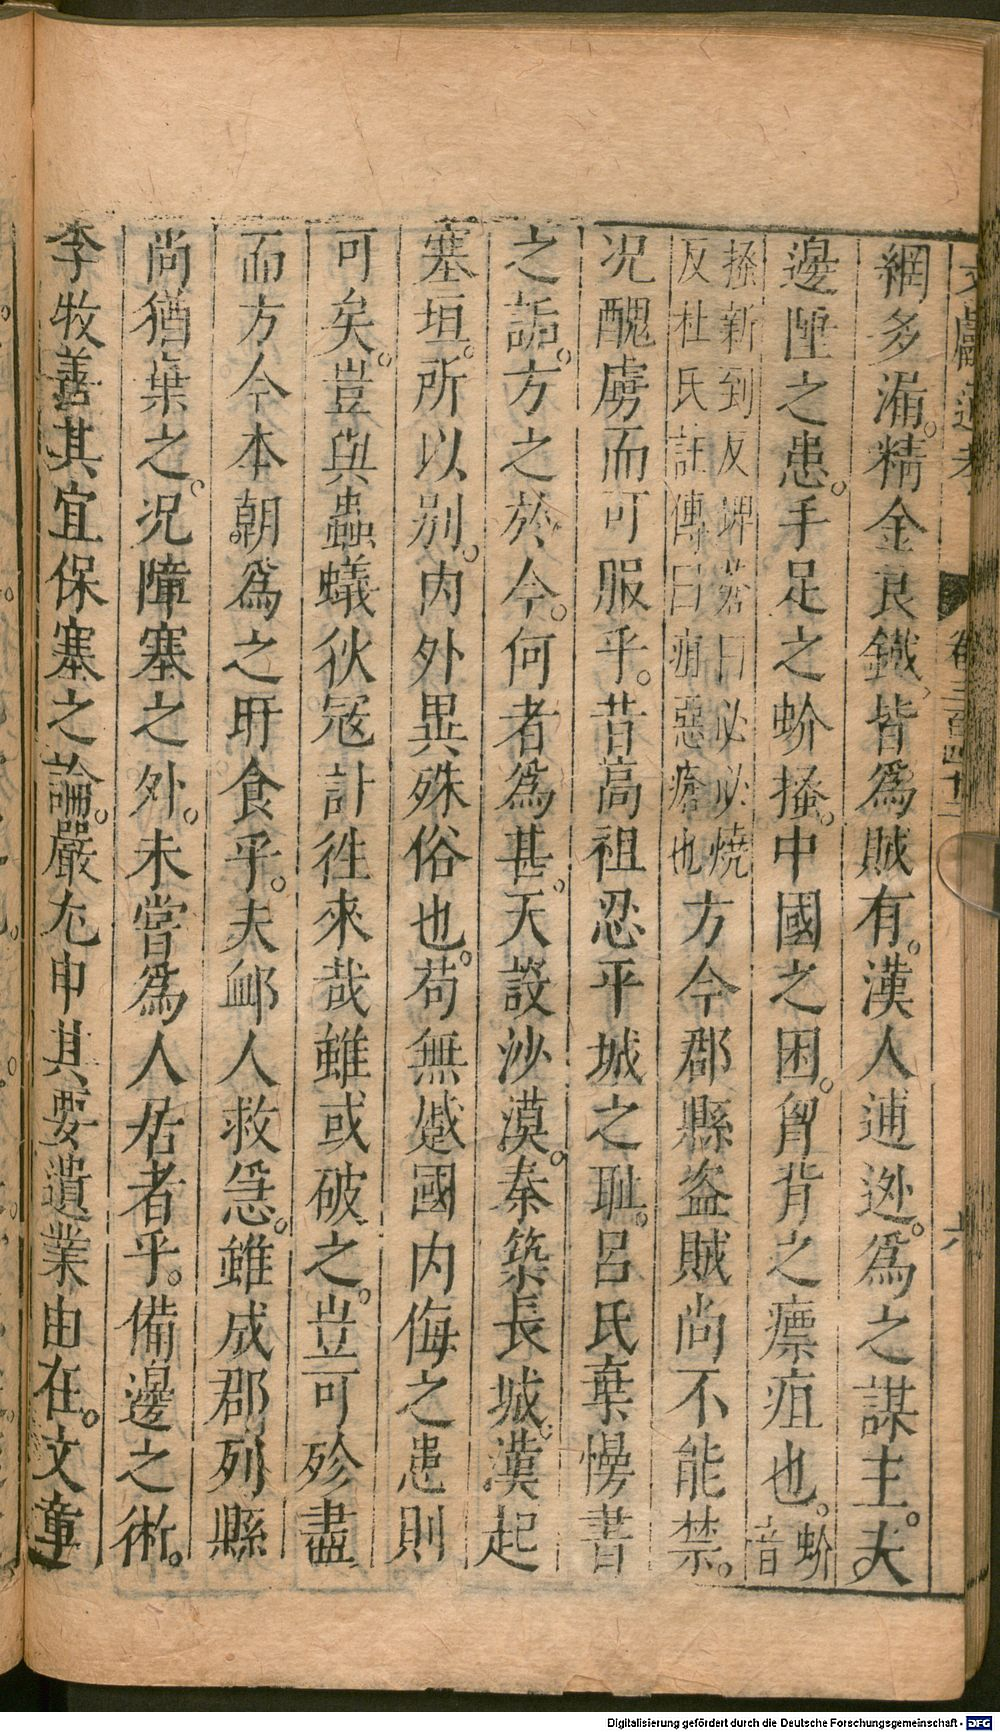 文獻通考 卷三百四十二 六
網多漏。精金良鐵、皆爲賊有。漢人逋逃。爲之謀主。夫
邊陲之患。手足之蚧搔。中國之困。胷背之瘭疽也。蚧音
搔新到反埤蒼曰必必燒
反杜氏註傳曰疽惡瘡也方今郡縣盜賊尚不能禁。
况醜虜而可服乎。昔高祖忍平城之耻。呂氏棄慢書
之詬。方之於今。何者爲甚。天設沙漠。秦築長城。漢起
塞垣。所以别。内外異殊俗也。苟無蹙國内侮之患則
可矣。豈與蟲蟻狄冦計徃來哉雖或破之。豈可殄盡
而方今本朝爲之旰食乎。夫䘏人救急。雖成郡列縣
尚猶棄之。况障塞之外。未嘗爲人居者乎。備邊之術。
李牧善其宜保塞之論。嚴尤申其要遺業由在。文章
Digitalisierung gefördert durch die Deutsche Forschungsgemeinschaft - DFG